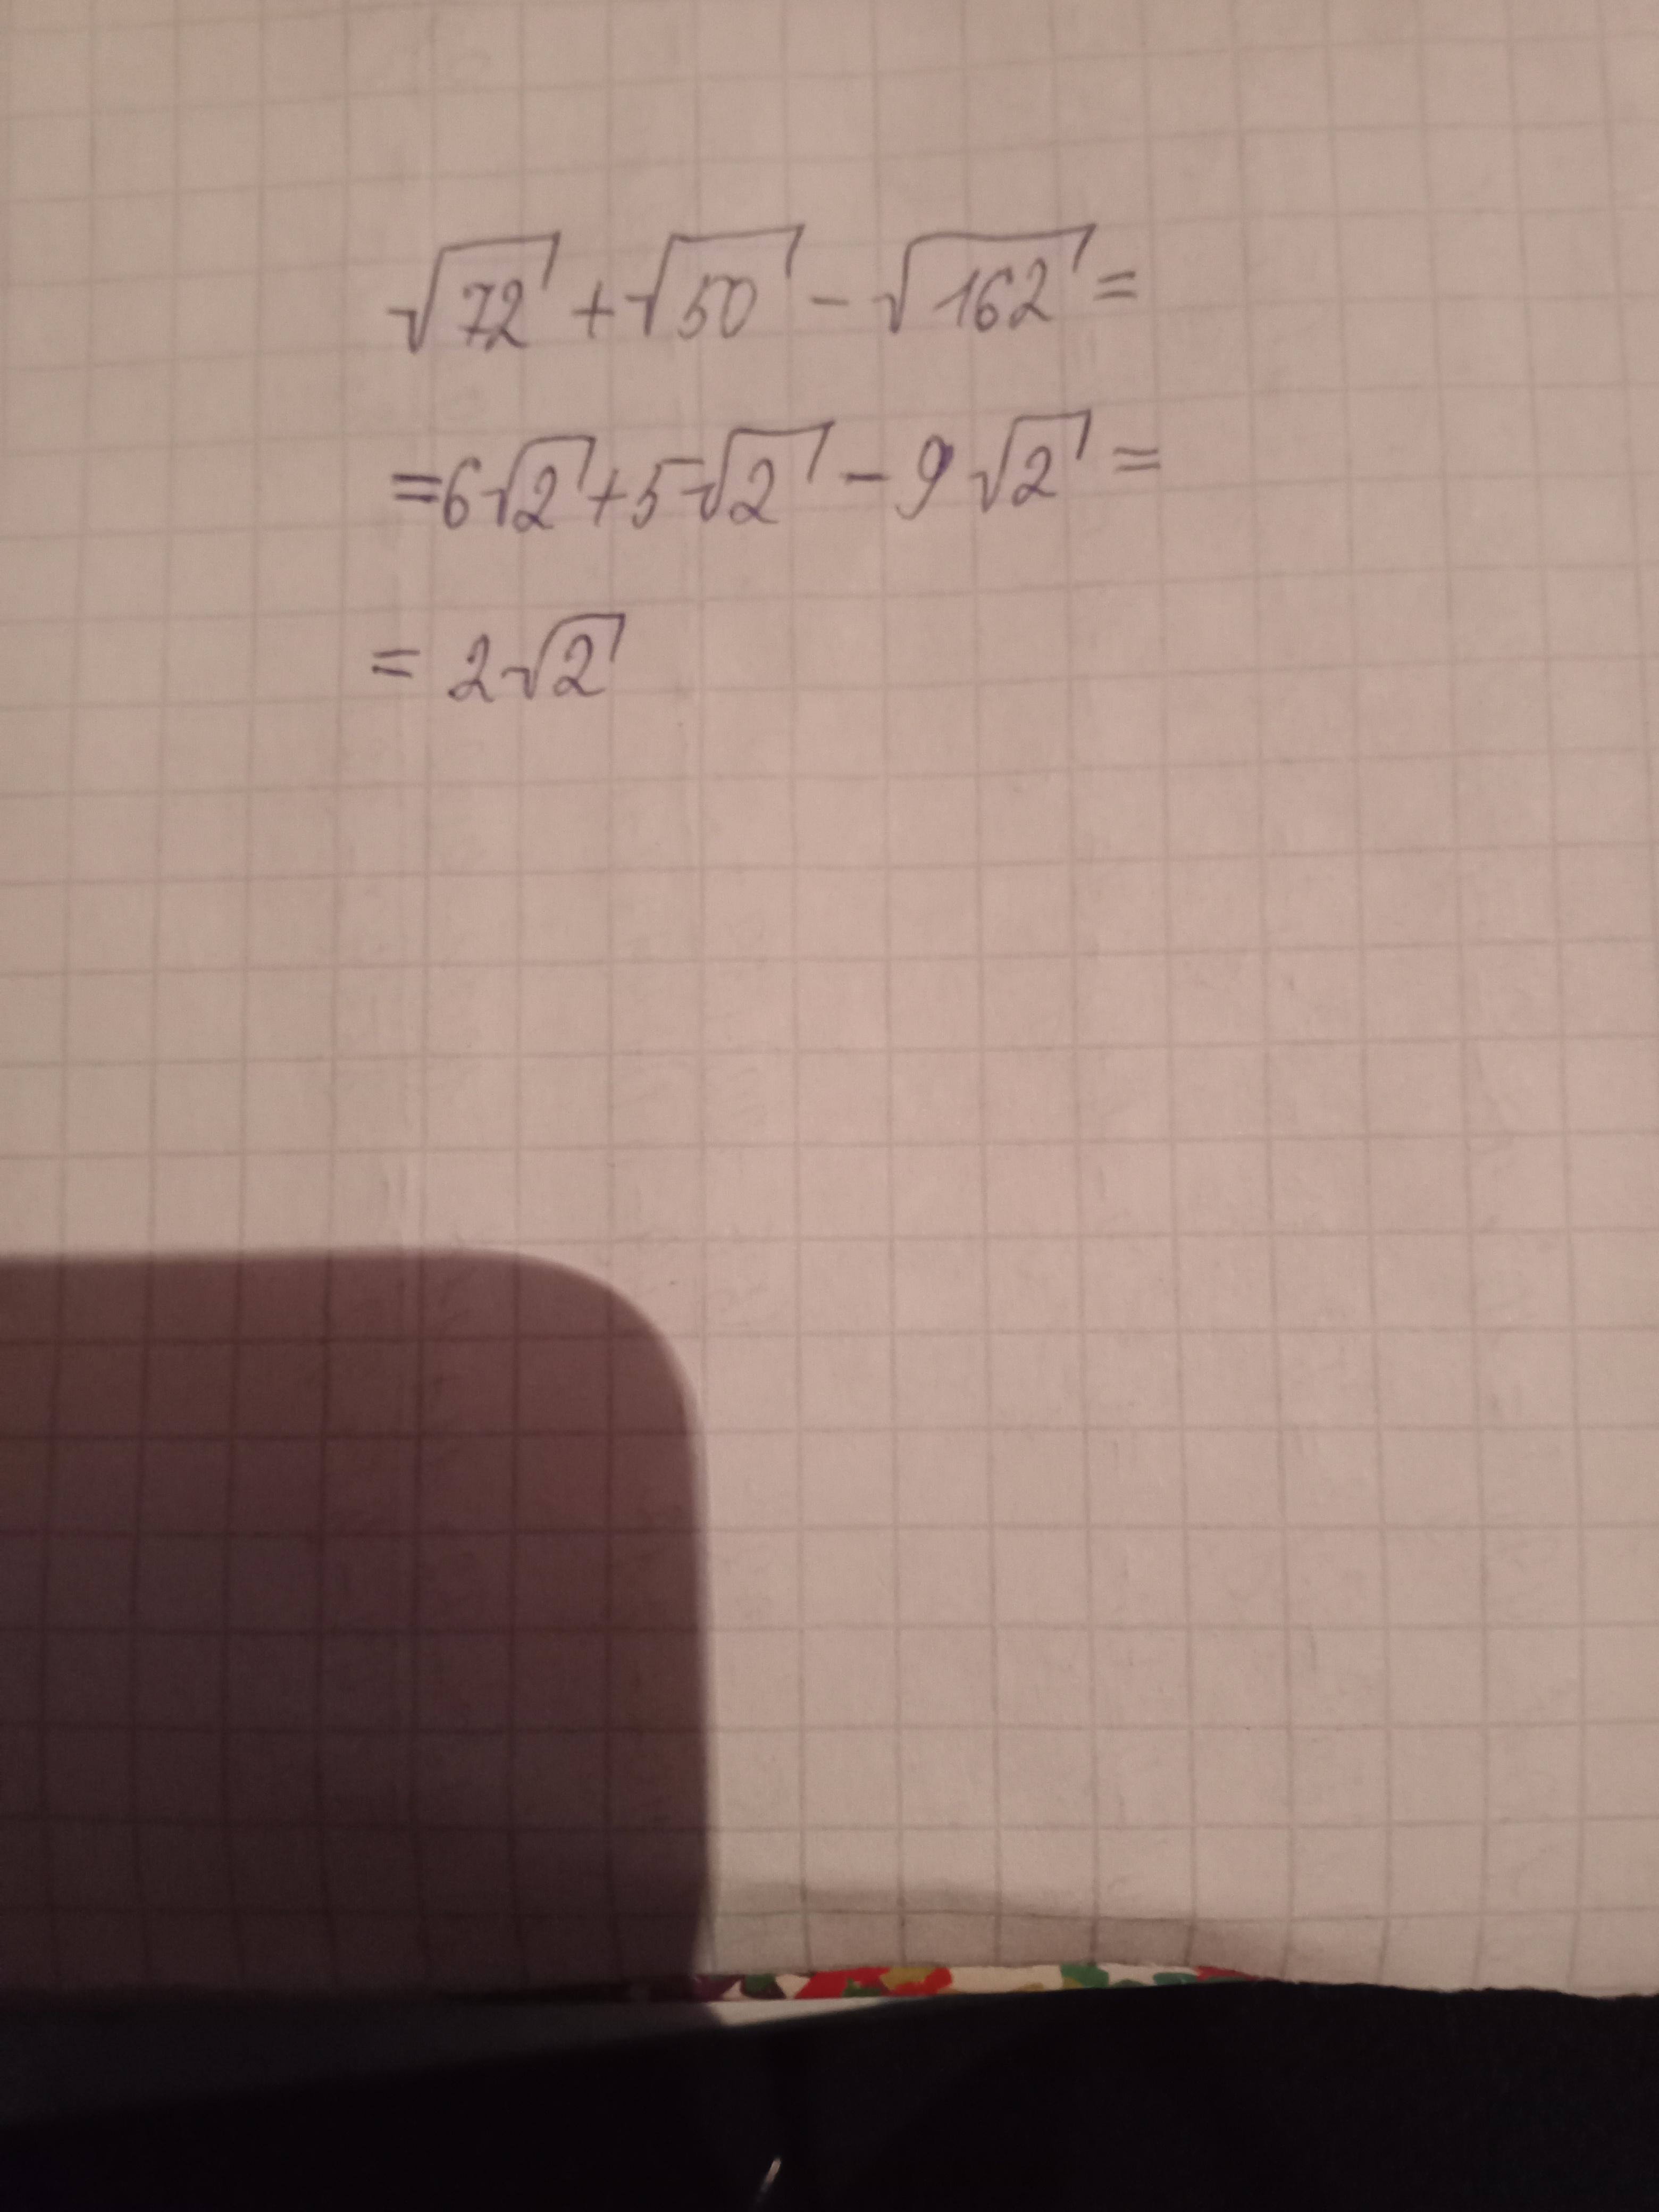 √72 + √50 - √162 =
= 6√2 + 5√2 - 9√2 =
= 2√2